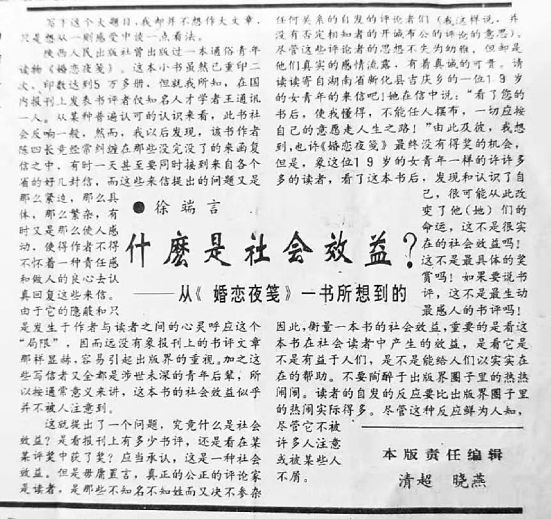 什麽是社会效益?
——从《婚恋夜笺》一书所想到的
●徐端言
写下这个大题目,我却并不想作大文章,
只是想从一则感受中谈一点看法。
陕西人民出版社曾出版过一本通俗青年
读物《婚恋夜笺》。这本小书虽然已重印二
次、印数达到5万多册,但就我所知,在国
内报刊上发表书评者仅知名人才学者王通讯
一人。从某种普遍认可的认识来看,此书社
会反响一般。然而,我以后发现,该书作者
陈四长竟经常纠缠在那些没完没了的来函复
信之中,有时一天甚至要同时接到来自各个
省的好几封信,而这些来信提出的问题又是
那么紧迫,那么具
体,那么繁杂,有
时又是那么使人感
动,使得作者不得
不怀着一种责任感
和做人的良心去认
真回复这些来信。
由于它的隐蔽和只
是发生于作者与读者之间的心灵呼应这个
“局限”,因而远没有象报刊上的书评文章
那样显赫,容易引起出版界的重视。加之这
些写信者又全都是涉世未深的青年后辈,所
以按通常意义来讲,这本书的社会效益似乎
并不被人注意到。
这就提出了一个问题,究竟什么是社会
效益?是看报刊上有多少书评,还是看在某
某评奖中获了奖?应当承认,这是一种社会
效益。但是毋庸置言,真正的公正的评论家
是读者,是那些不知名不知姓而又决不参杂
任何关系的自发的评论者们(我这样说,并
没有否定相知者的开诚布公的评论的意思)。
尽管这些评论者的思想不失为幼稚,但却是
他们真实的感情流露,有着真诚的可贵。请
读读寄自湖南省新化县吉庆乡的一位19岁
的女青年的来信吧!她在信中说:“看了您的
书后,使我懂得,不能任人摆布,一切应按
自己的意愿走人生之路!”由此及彼,我想
到,也许《婚恋夜笺》最终没有得奖的机会,
但是,象这位19岁的女青年一样的许许多
多的读者,看了这本书后,发现和认识了自
己,很可能从此改
变了他(她)们的
命运,这不是很实
在的社会效益吗!
这不是最具体的奖
赏吗!如果要说书
评,这不是最生动
最感人的书评吗!
因此,衡量一本书的社会效益,重要的是看这
本书在社会读者中产生的效益,是看它是
不是有益于人们,是不是能给人们以实实在
在的帮助。不要陶醉于出版界圈子里的热热
闹闹。读者的自发的反应要比出版界圈子里
的热闹实际得多。尽管这种反应鲜为人知,
尽管它不被
许多人注意
或被某些人
不屑。
本版责任编辑
清超 晓燕